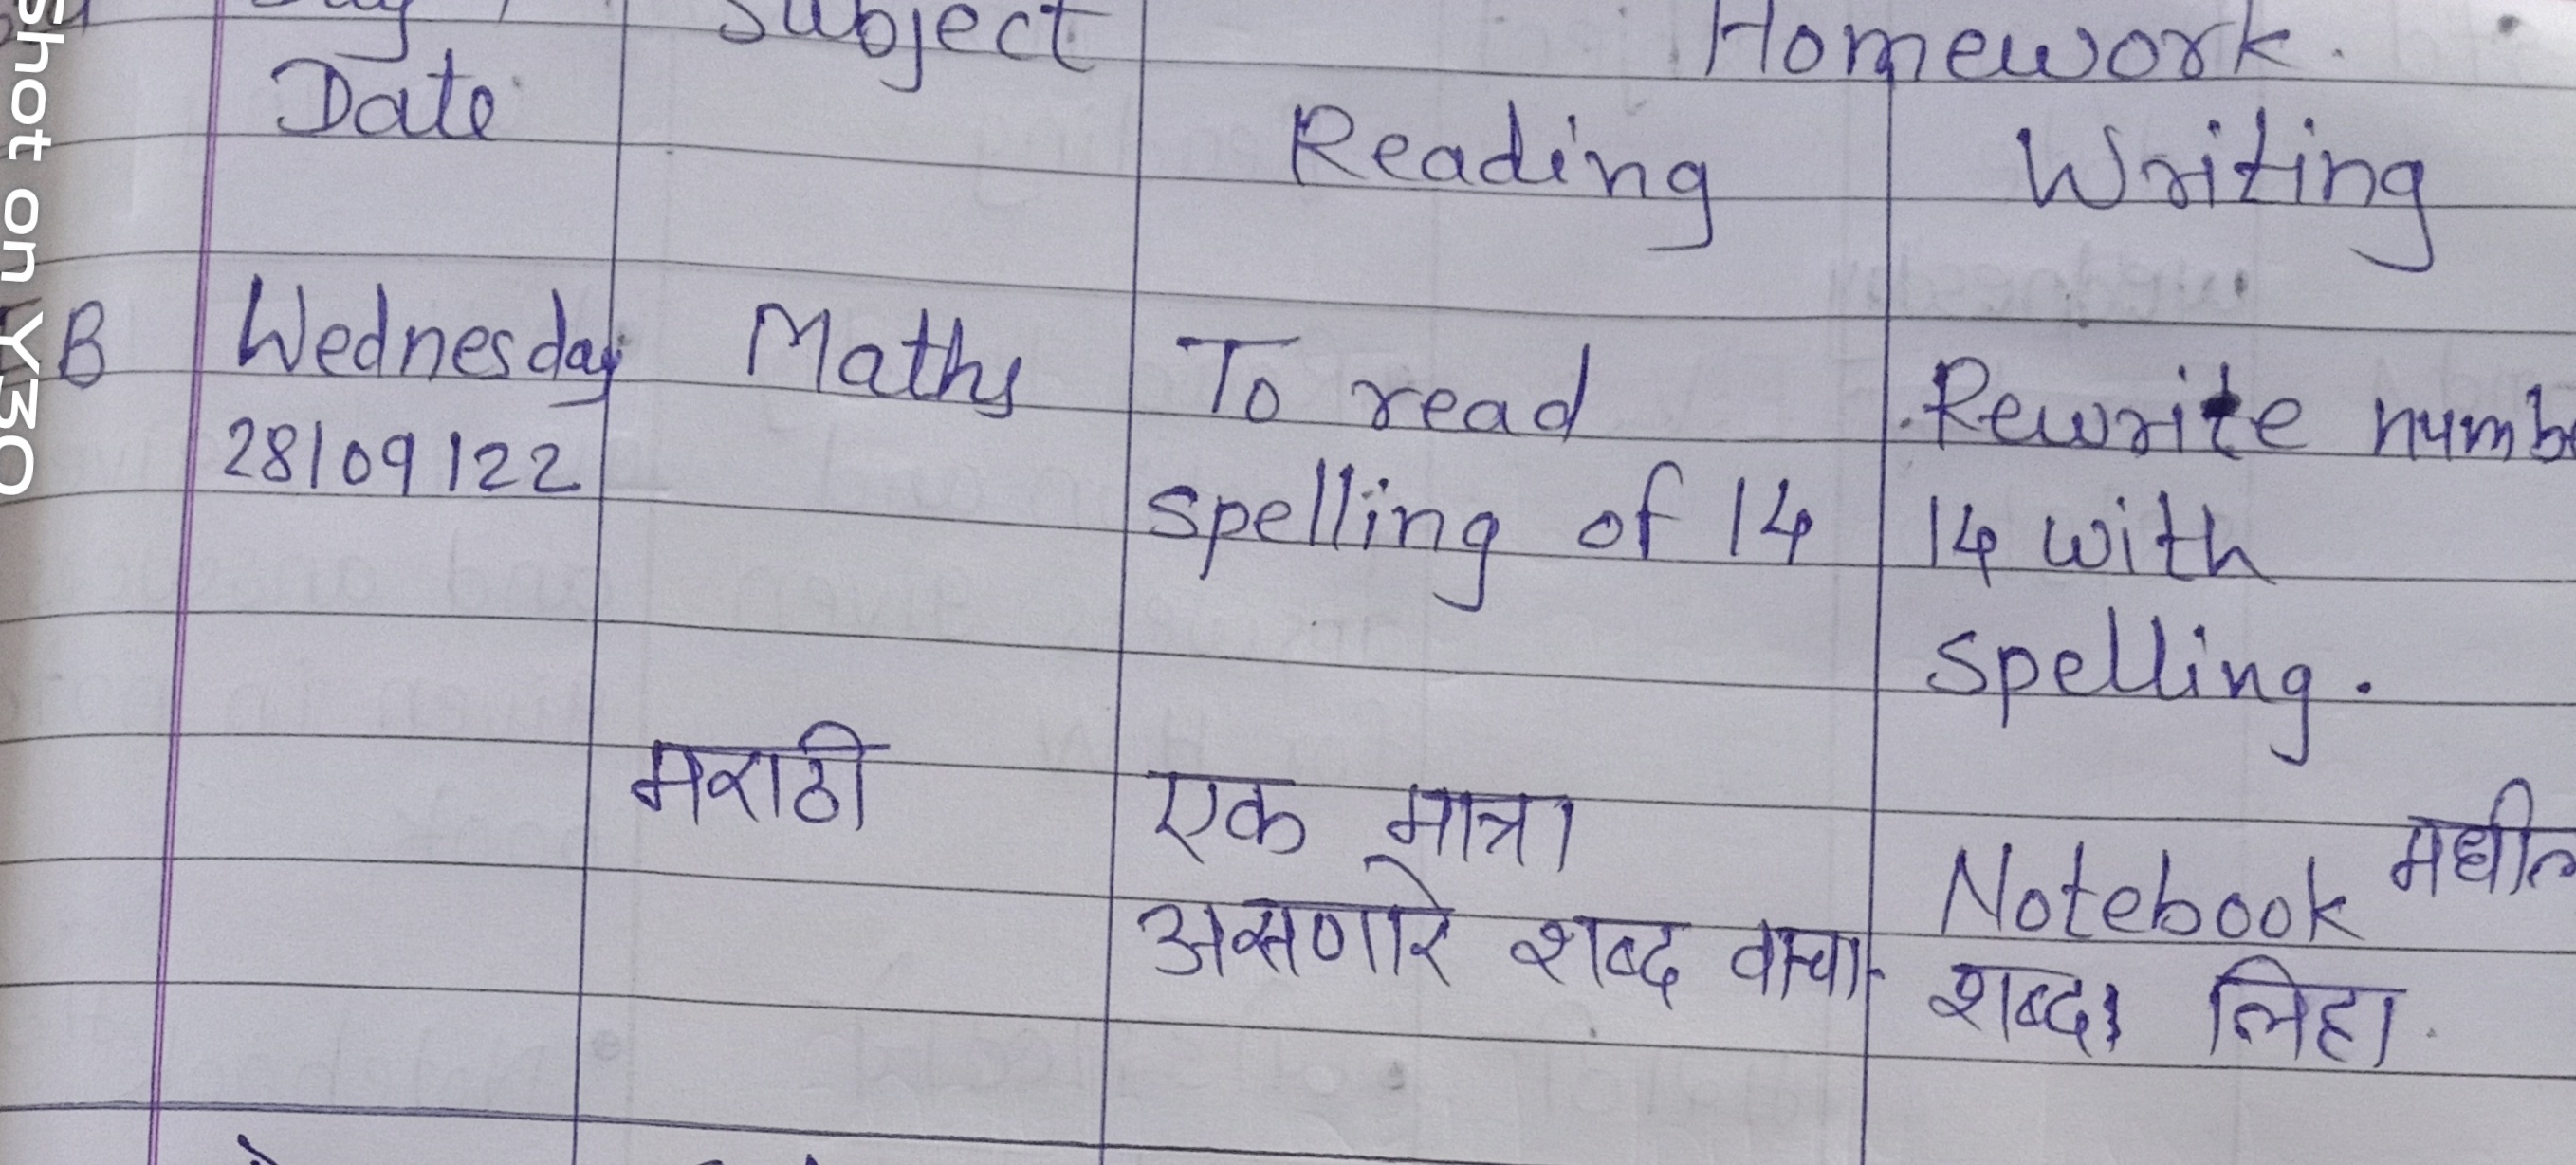 Subject Homework.
Date
Reading Writing
B Wednesday Maths To read Rewrite
28/09/22 spelling of 14 14 with
spelling.
मराठी एक मात्रा Notebook
असणारे शब्द वाचा शब्द लिहा.
shot on Y30